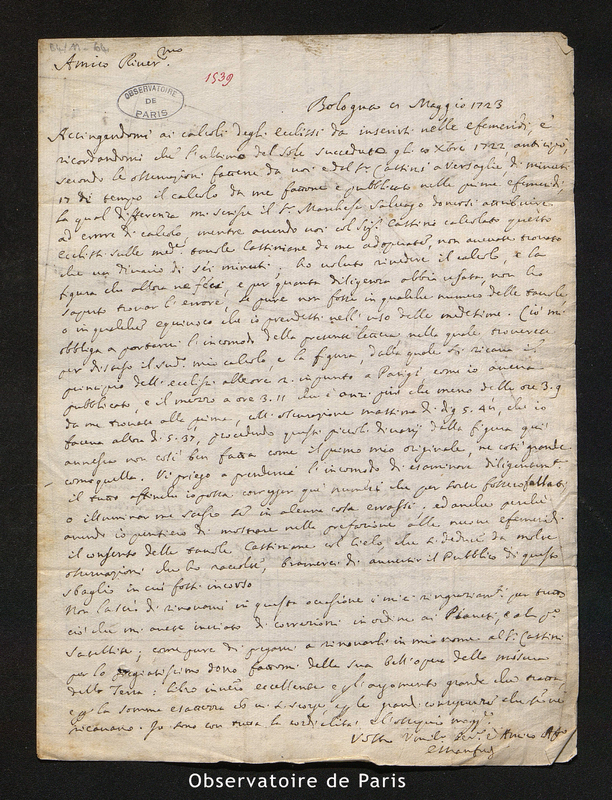 Amico River.mo
1539
OBSERVATOIRE
DE
PARIS
Bologna 21 Maggio 1723
Accingendomi ai calcoli degli ecclissi da inserirsi nelle efemeridi, e
ricordandomi che l'ultimo del Sole succeduto gli 1722 anticipò
secondo le osservazioni fattene da voi e dal Sr Cassini a Versaglie di minuti
17 di tempo il calcolo da me fattone e pubblicato nelle prime efemeridi
la qual differenza mi scrisse il Sr Marchese Salvago doversi attribuire
ad errore di calcolo, mentre avendo voi col Sigr Cassino calcolato questo
ecclissi sulle med.e tavole Cassiniane da me adoperate, non avevate trovato
che un divario di sei minuti; ho voluto rivedere il calcolo, e la
figura che allora ne feci, e per quanta diligenza abbia usata, non ho
saputo trovar l'errore, se pure non fosse in qualche numero delle tavole,
o in qualche equivoco che io prendessi nell'uso delle medesime. Ciò mi
obbliga a portarvi l'incomodo della presente lettera nella quale troverete
per disteso il sud.o mio calcolo, e la figura, dalla quale si ricava il
principio dell'eclisse alle ore 2. in punto a Parigi come io aveva
pubblicato, e il mezzo a ore 3.11 che è anzi più che meno delle ore 3.9
da me trovate alla prima, e l'osservazione massima di dig. 5.41, che io
faceva allora di 5.37, procedendo questi piccoli divarj dalla figura qui
annessa non così ben fatta come il primo mio originale, ne così grande
come quella. Vi priego a prendervi l'incomodo di esaminare diligentem.te
il tutto affinchè io possa corregger que' numeri che per sorte fossero fallati
o illuminar me stesso se in alcuna cosa errassi, ed anche perchè
avendo io pensiero di mostrare nella prefazione alle nuove efemeridi
il consenso delle tavole Cassiniane col cielo che si deduce da molte
osservazioni che ho raccolte, bramerei di avvertir il Pubblico di questo
sbaglio in cui fossi incorso
Non lascio di rinovarvi in questa occasione i miei ringraziam.ti per tutto
ciò che mi avete inviato di correzioni in ordine ai Pianeti, e al p.o
Satellite; come pure di pregarvi a rinovarli in mio nome al Sr Cassini
per lo pregiatissimo dono fattomi della sua bell'opera della misura
della Terra: libro invero eccellente e per l'argomento grande che tratta,
e per la somma esattezza ch in si scorge, e per le grandi conseguenze che se ne
ricavano. Io sono con tutta la cordialità, e l'ossequio magg.re
Vostro Umil.o Ser.e e Amico Aff.o
EManfredi
Observatoire de Paris